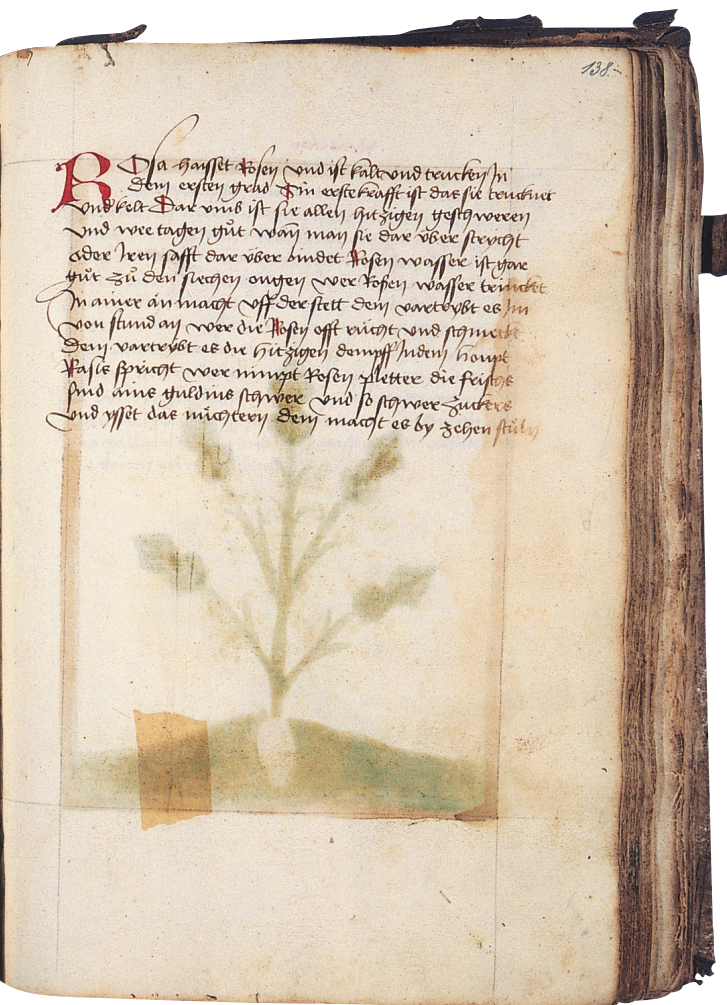 138.
Rosa haisset Rosen vnd ist kalt vnd trucken Jn
dem ersten grad Sin erste krafft ist das sie trucknet
vnd kelt Dar vmb ist sie allen hitzigen geschweren
vnd wee tagen gůt wan man sie dar über strycht
oder Iren safft dar über bindet Rosen wasser ist gar
gůt zů den siechen ougen wer Rosen wasser trincket
Jn ainer ain macht vff der stett dem vartrybt es Jm
von stund an wer die Rosen offt rücht vnd schmeckt
dem vartrybt es die hitzigen dempff Jn dem houpt
Rasis spricht wer nimpt Rosen pletter die frisch
sind ains guldins schwer vnd so schwer zuckers
vnd ysset das nüchtern dem macht es by zehen stůln